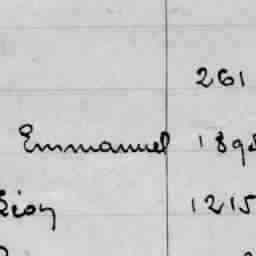 261
Emmanuel 189
Léon 1215